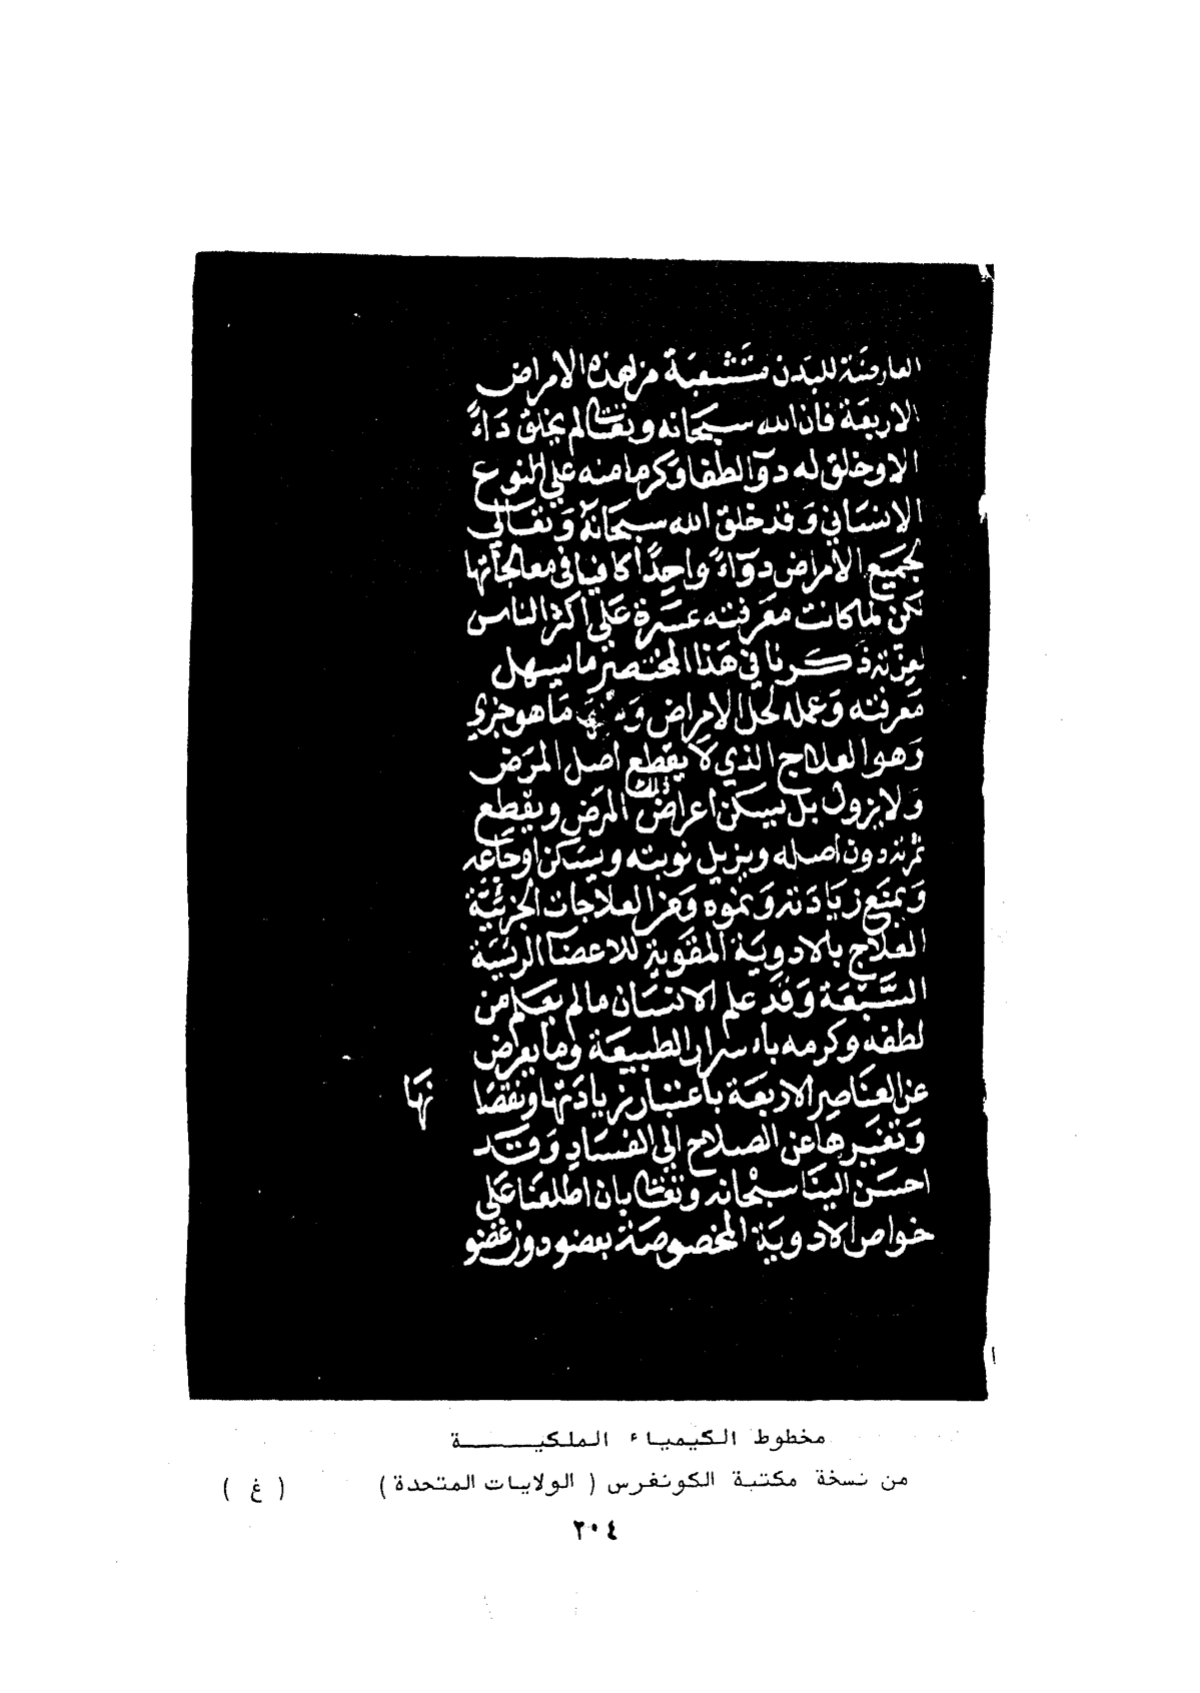 العارضة للبدن متشعبة من هذه الامراض
الاربعة فان الله سبحانه وتعالى لم يخلق دَاءً
الا وخلق له دوآ لطفا وكرما منه علي النوع
الانساني وقد خلق الله سبحانه وتعالي
لجميع الأمراض دوآءً واحدًا كافيا في معالجاتها
لكن لما كانت معرفته عسرة على اكثر الناس
لعزته ذكرنا في هذا المختصر ما يسهل
معرفته وعمله لحل الامراض ما هو جزي
وهو العلاج الذي لا يقطع اصل المرض
ولا يزول بل يسكن اعراض تلك المرض ويقطع
ثمرته دون اصله ويزيل نوبته ويسكن اوجاعه
ويمنع زيادته ونموه وهذ العلاجات الجزئيّة
العلاج بالادوية المقوية للاعضآ الرئسية
السَّبْعَة وقد علم الانسان مالم يعلم من
لطفه وكرمه باسرار الطبيعة وما يعرض
عن العناصر الاربعة باعتبار زيادتها ونقصا نها
وتغيرها عن الصلاح الي الفساد وقد
احسن الينا سبحانه وتعالى بان اطلعنا على
خواص الادوية المخصوصة بعضو دون عضو
مخطوط الكيمياء الملكيــــــة
من نسخة مكتبة الكونغرس ( الولايات المتحدة ) ( غ )
٢٠٤